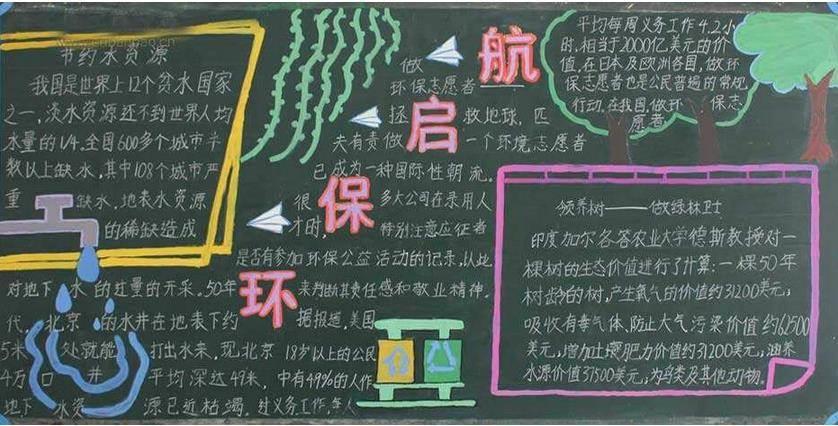 节约水资源
我国是世界上12个贫水国家
之一,淡水资源还不到世界人均
水量的1/4.全国600多个城市半
数以上缺水,其中108个城市严
重 缺水.地表水资源
的稀缺造成
对地下 水 的过量的开采.50年
代,北京 的水井在地表下约
5米 处就能 打出水来,现北京
4万 口 井 平均深达49米,
地下 水资 源已近枯竭.
环保启航
做
环保志愿者
拯 救地球,匹
夫有责做 一个环境志愿者
已成为一种国际性朝流.
很 多大公司在录用人
才时, 特别注意应征者
是否有参加环保公益活动的记录,以此
来判断其责任感和敬业精神.
据报道,美国
18岁以上的公民
中有49%的人作
过义务工作,每人
平均每周义务工作4.2小
时,相当于2000亿美元的价
值,在日本及欧洲各国,做环
保志愿者也是公民普遍的常规
行动,在我国,做环 保志
愿者
领养树——做绿林卫士
印度加尔各答农业大学德斯教授对一
棵树的生态价值进行了计算:一棵50年
树龄的树,产生氧气的价值约31200美元;
吸收有毒气体、防止大气污染价值约62500
美元,增加土壤肥力价值约31200美元,涵养
水源价值37500美元,为鸟类及其他动物.